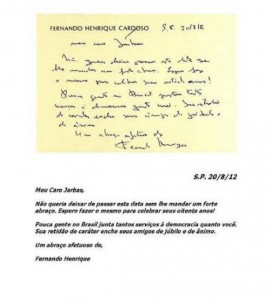 FERNANDO HENRIQUE CARDOSO
S.P. 20/8/12
Meu caro Jarbas,
Não queria deixar passar esta data sem
lhe mandar um forte abraço. Espero fazer o
mesmo para celebrar seus oitenta anos!
Pouca gente no Brasil junta tantos
serviços à democracia quanto você. Sua retidão
de caráter enche seus amigos de júbilo e
de ânimo.
Um abraço afetuoso de,
Fernando Henrique
S.P. 20/8/12
Meu Caro Jarbas,
Não queria deixar de passar esta data sem lhe mandar um forte
abraço. Espero fazer o mesmo para celebrar seus oitenta anos!
Pouca gente no Brasil junta tantos serviços à democracia quanto você.
Sua retidão de caráter enche seus amigos de júbilo e de ânimo.
Um abraço afetuoso de,
Fernando Henrique